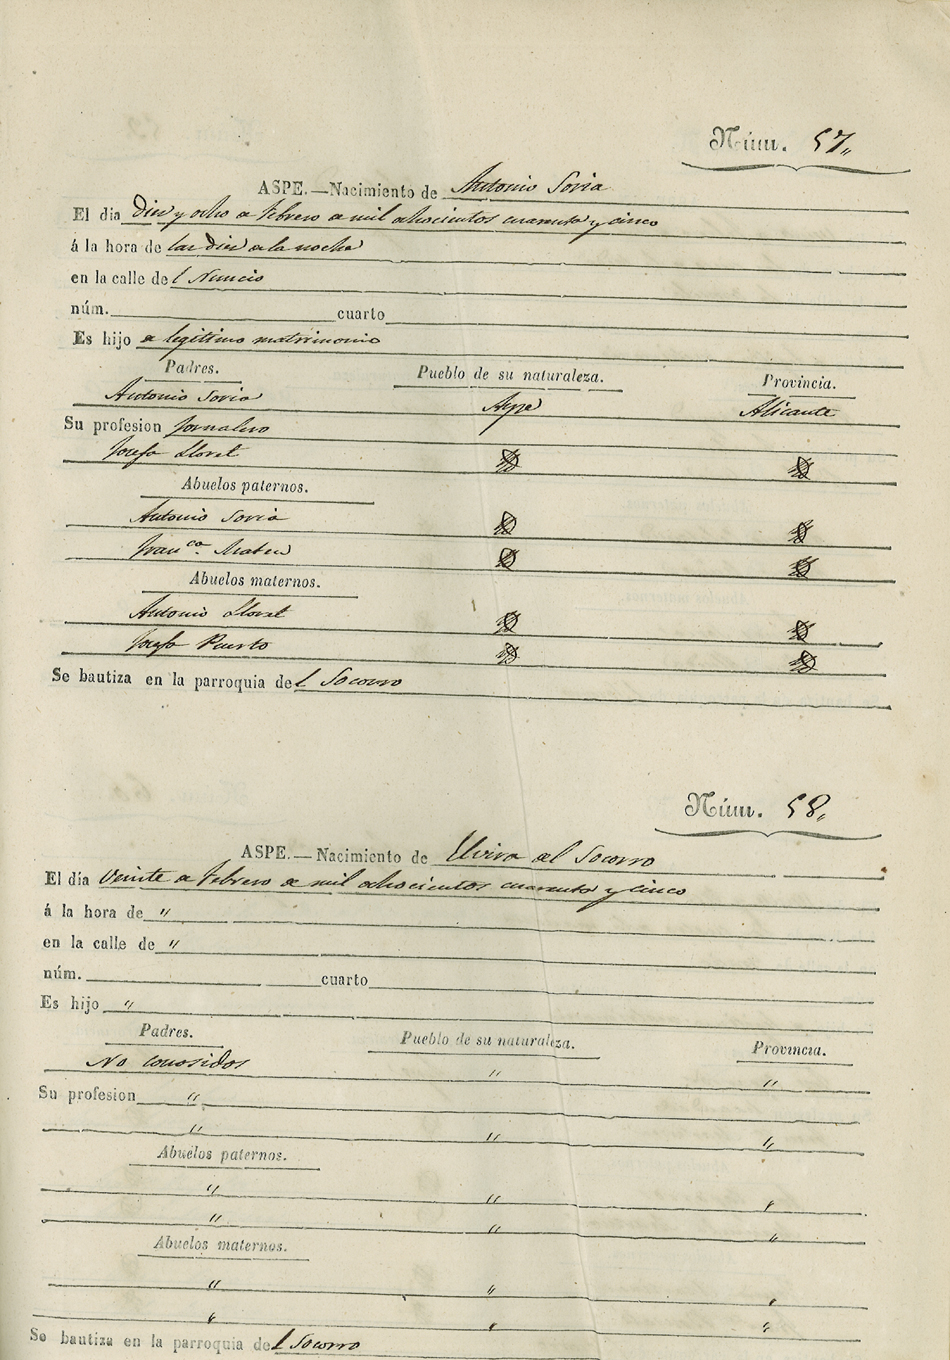 Núm. 57,,
ASPE.—Nacimiento de Antonio Soria
El dia Diez y ocho de febrero de mil ochocientos cuarenta y cinco
á la hora de las Diez de la noche
en la calle del Nuncio
núm. cuarto
Es hijo de legitimo matrimonio
Padres. Pueblo de su naturaleza. Provincia.
Antonio Soria Aspe Alicante
Su profesion Jornalero
Josefa Lloret
Abuelos paternos.
Antonio Soria
Franca. Mateu
Abuelos maternos.
Antonio Lloret
Josefa Puerto
Se bautiza en la parroquia del Socorro
Núm. 58,,
ASPE.—Nacimiento de Elvira del Socorro
El dia Veinte de febrero de mil ochocientos cuarenta y cinco
á la hora de "
en la calle de "
núm. cuarto
Es hijo "
Padres. Pueblo de su naturaleza. Provincia.
No conosidos " "
Su profesion "
" " "
Abuelos paternos.
" " "
" " "
Abuelos maternos.
" " "
" " "
Se bautiza en la parroquia del Socorro